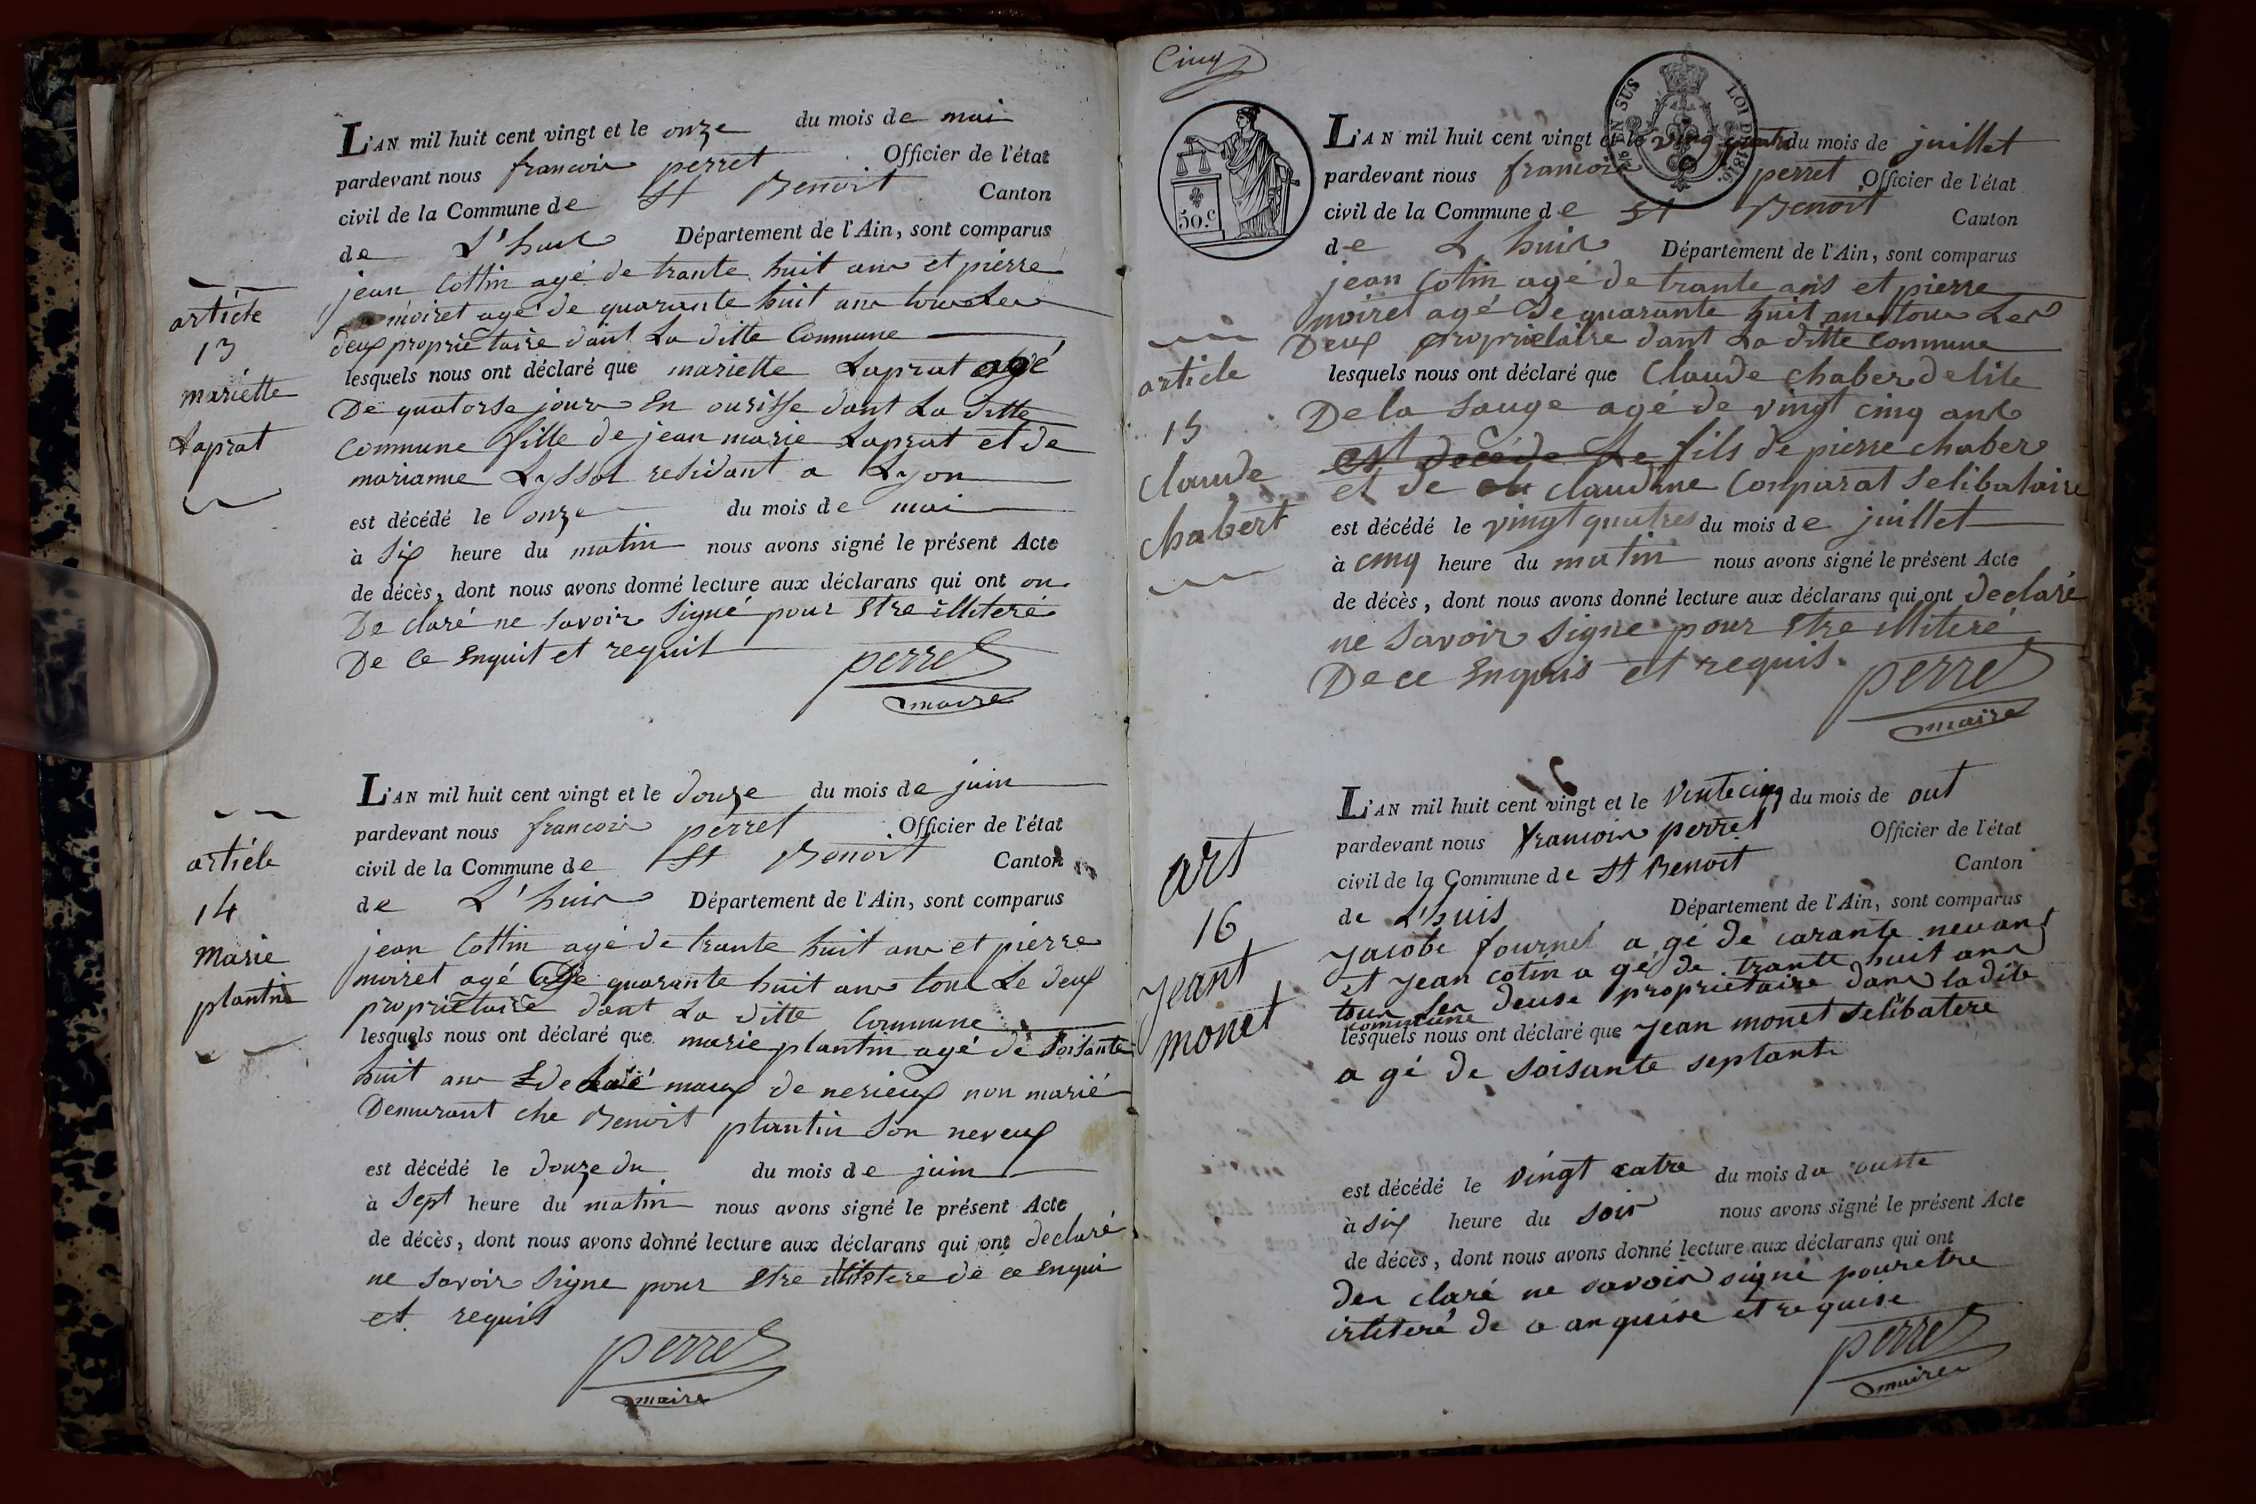 L'AN mil huit cent vingt et le onze du mois de mai
pardevant nous francois perret Officier de l'état
civil de la Commune de St Benoit Canton
de L'huis Département de l'Ain, sont comparus
jean Cottin agé de trante huit ans et pierre
moiret agé de quarante huit ans tous les
deux proprietaire dant La ditte Commune
article
13
mariette
Laprat
lesquels nous ont déclaré que mariette Laprat agé
De quatorse jours En ourisse dant La ditte
Commune fille de jean marie Laprat et de
marianne Lyssot residant a Lyon
est décédé le onze du mois de mai
à Six heure du matin nous avons signé le présent Acte
de décès, dont nous avons donné lecture aux déclarans qui ont on
De claré ne savoir Signé pour Etre illiteré
De Ce Enquit et requit
perret
maire
L'AN mil huit cent vingt et le douze du mois de juin
pardevant nous francois perret Officier de l'état
civil de la Commune de St Benoit Canton
de L'huis Département de l'Ain, sont comparus
article
14
Marie
plantin
jean Cottin agé de trante huit ans et pierre
moiret agé De quarante huit ans tous Le deux
proprietaire dant La ditte Commune
lesquels nous ont déclaré que marie plantin agé de Soisante
huit ans de maux de nerieux non marié
Demurant che Benoit plantin Son neveux
est décédé le douze du du mois de juin
à Sept heure du matin nous avons signé le présent Acte
de décès, dont nous avons donné lecture aux déclarans qui ont declaré
ne savoir Signe pour Etre de ce Enqui
et requis
perret
maire
Cinq
50.c
EN SUS
LOI DE 1816.
L'AN mil huit cent vingt et le vingt quatre du mois de juillet
pardevant nous francois perret Officier de l'état
civil de la Commune de St Benoit Canton
de L huis Département de l'Ain, sont comparus
jean Cotin agé de trante ans et pierre
moiret agé De quarante huit ans tous Les
Deux proprietaire dant La ditte Commune
article
15
Claude
chabert
lesquels nous ont déclaré que Claude chaber delile
De la Sauge agé de vingt cinq ans
est decede Le fils de pierre chaber
et de claudine Comparat Selibataire
est décédé le vingt quatres du mois de juillet
à cinq heure du matin nous avons signé le présent Acte
de décès, dont nous avons donné lecture aux déclarans qui ont declaré
ne Savoir Signe pour Etre illiteré
De ce Enquis et requis.
perret
maire
L'AN mil huit cent vingt et le Vintecinq du mois de out
pardevant nous francois perret Officier de l'état
civil de la Commune de St Benoit Canton
de L'huis Département de l'Ain, sont comparus
art
16
jeant
monet
Jacobe fournet a gé de carante neuans
et jean cotin a gé de trante huit ans
tous les deuse proprietaire dans ladite
commune
lesquels nous ont déclaré que jean monet Selibatere
a gé de soisante septante
est décédé le vingt catre du mois de ouste
à Six heure du soir nous avons signé le présent Acte
de décès, dont nous avons donné lecture aux déclarans qui ont
des claré ne savoir signé pouretre
irliteré de ce anquise et requise
perret
maire